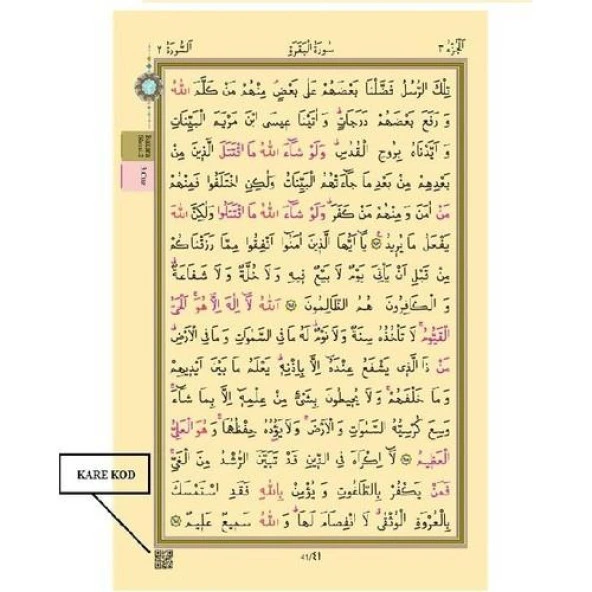 الجزء ٣
سورة البقرة
السورة ٢
تِلْكَ الرُّسُلُ فَضَّلْنَا بَعْضَهُمْ عَلٰى بَعْضٍ مِنْهُمْ مَنْ كَلَّمَ اللّٰهُ
وَرَفَعَ بَعْضَهُمْ دَرَجَاتٍ وَاٰتَيْنَا عِيسَى ابْنَ مَرْيَمَ الْبَيِّنَاتِ
وَاَيَّدْنَاهُ بِرُوحِ الْقُدُسِ وَلَوْ شَٓاءَ اللّٰهُ مَا اقْتَتَلَ الَّذِينَ مِنْ
بَعْدِهِمْ مِنْ بَعْدِ مَا جَٓاءَتْهُمُ الْبَيِّنَاتُ وَلٰكِنِ اخْتَلَفُوا فَمِنْهُمْ
مَنْ اٰمَنَ وَمِنْهُمْ مَنْ كَفَرَ وَلَوْ شَٓاءَ اللّٰهُ مَا اقْتَتَلُوا وَلٰكِنَّ اللّٰهَ
يَفْعَلُ مَا يُرِيدُ ﴿٢٥٣﴾ يَٓا اَيُّهَا الَّذِينَ اٰمَنُٓوا اَنْفِقُوا مِمَّا رَزَقْنَاكُمْ
مِنْ قَبْلِ اَنْ يَأْتِيَ يَوْمٌ لَا بَيْعٌ فِيهِ وَلَا خُلَّةٌ وَلَا شَفَاعَةٌ
وَالْكَافِرُونَ هُمُ الظَّالِمُونَ ﴿٢٥٤﴾ اَللّٰهُ لَٓا اِلٰهَ اِلَّا هُوَ اَلْحَيُّ
الْقَيُّومُ لَا تَأْخُذُهُ سِنَةٌ وَلَا نَوْمٌ لَهُ مَا فِي السَّمٰوَاتِ وَمَا فِي الْاَرْضِ
مَنْ ذَا الَّذِي يَشْفَعُ عِنْدَهُٓ اِلَّا بِاِذْنِهِ يَعْلَمُ مَا بَيْنَ اَيْدِيهِمْ
وَمَا خَلْفَهُمْ وَلَا يُحِيطُونَ بِشَيْءٍ مِنْ عِلْمِهِٓ اِلَّا بِمَا شَٓاءَ
وَسِعَ كُرْسِيُّهُ السَّمٰوَاتِ وَالْاَرْضَ وَلَا يَؤُ۫دُهُ حِفْظُهُمَا وَهُوَ الْعَلِيُّ
الْعَظِيمُ ﴿٢٥٥﴾ لَٓا اِكْرَاهَ فِي الدِّينِ قَدْ تَبَيَّنَ الرُّشْدُ مِنَ الْغَيِّ
فَمَنْ يَكْفُرْ بِالطَّاغُوتِ وَيُؤْمِنْ بِاللّٰهِ فَقَدِ اسْتَمْسَكَ
بِالْعُرْوَةِ الْوُثْقٰى لَا انْفِصَامَ لَهَا وَاللّٰهُ سَمِيعٌ عَلِيمٌ ﴿٢٥٦﴾
Bakara
3.Cüz
KARE KOD
41/٤١